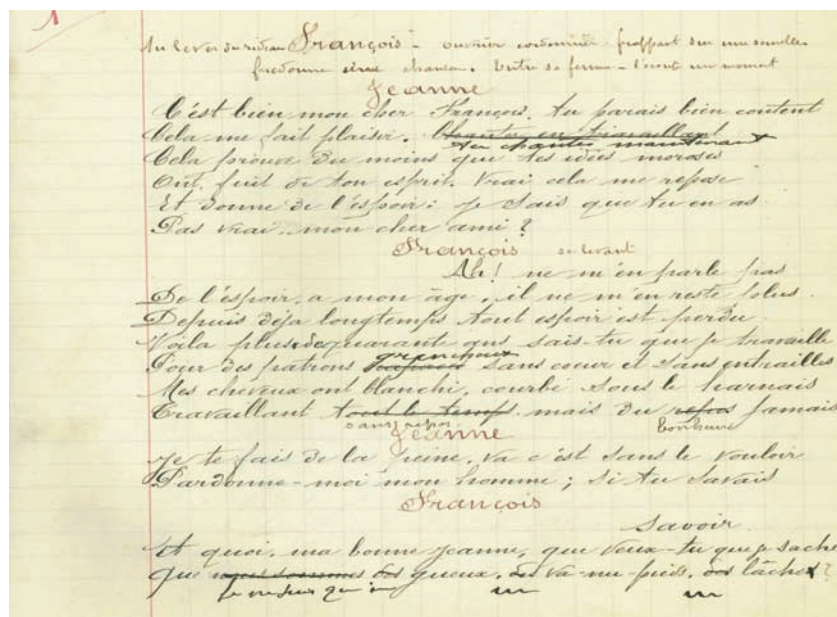 1
Au lever du rideau François - ouvrier cordonnier frappant sur une semelle
fredonne une chanson. Entre sa femme - l'écoute un moment
Jeanne
C'est bien mon cher François. tu parais bien content
Cela me fait plaisir. Chanter en travaillant
tu chantes maintenant
Cela prouve du moins que tes idées moroses
Ont fuit de ton esprit. Vrai cela me repose
Et donne de l'espoir: je sais que tu en as
Pas vrai. mon cher ami?
François se levant
Ah! ne m'en parle pas
De l'espoir, a mon âge, il ne m'en reste plus
Depuis déja longtemps tout espoir est perdu
Voila plus de quarante ans sais-tu que je travaille
grincheux
Pour des patrons sans cœur et sans entrailles
Mes cheveux ont blanchi, courbé sous le harnais
Travaillant tout le temps. mais du repos jamais
sans repos bonheur
Jeanne
Je te fais de la peine, va c'est sans le vouloir
Pardonne-moi mon homme; si tu savais
François
savoir
Et quoi, ma bonne Jeanne, que veux-tu que je sache
Que nous sommes des gueux, des va-nu-pieds, des lâches?
je ne suis qu'un